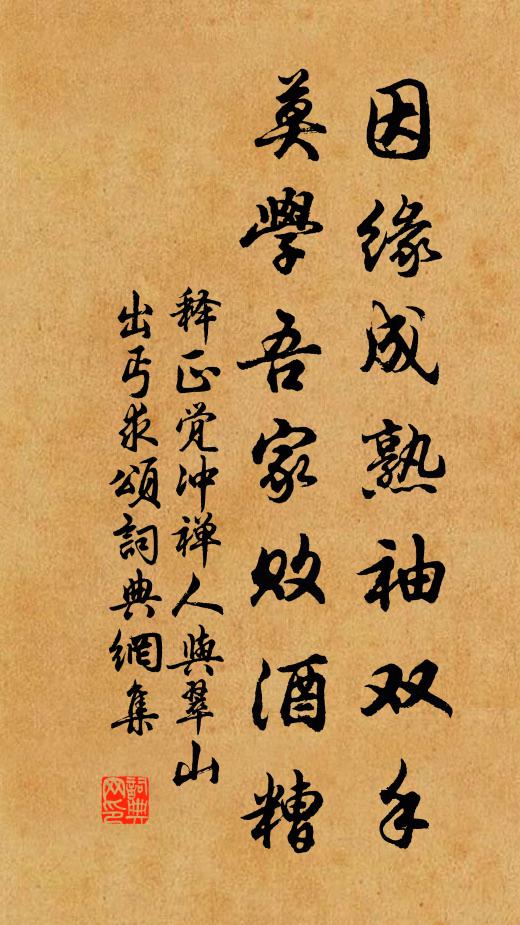 因缘成熟袖双手
莫學吾家败酒糟
释正觉冲禅人與翠山
出丐求頌詞典網集
詞典网印